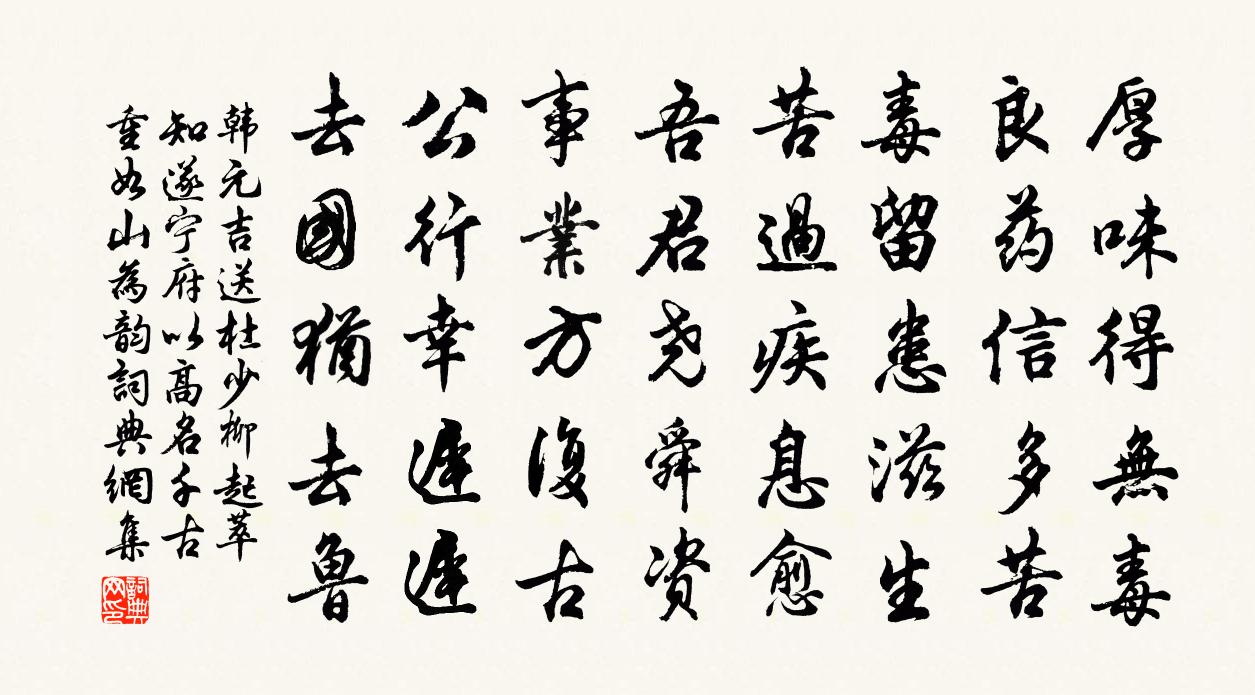 厚味得無毒
良药信多苦
毒留患滋生
苦過疾息愈
吾君尧舜资
事業方復古
公行幸遲遲
去國猶去魯
韩元吉送杜少柳起莘
知遂宁府以高名千古
重如山為韵詞典網集